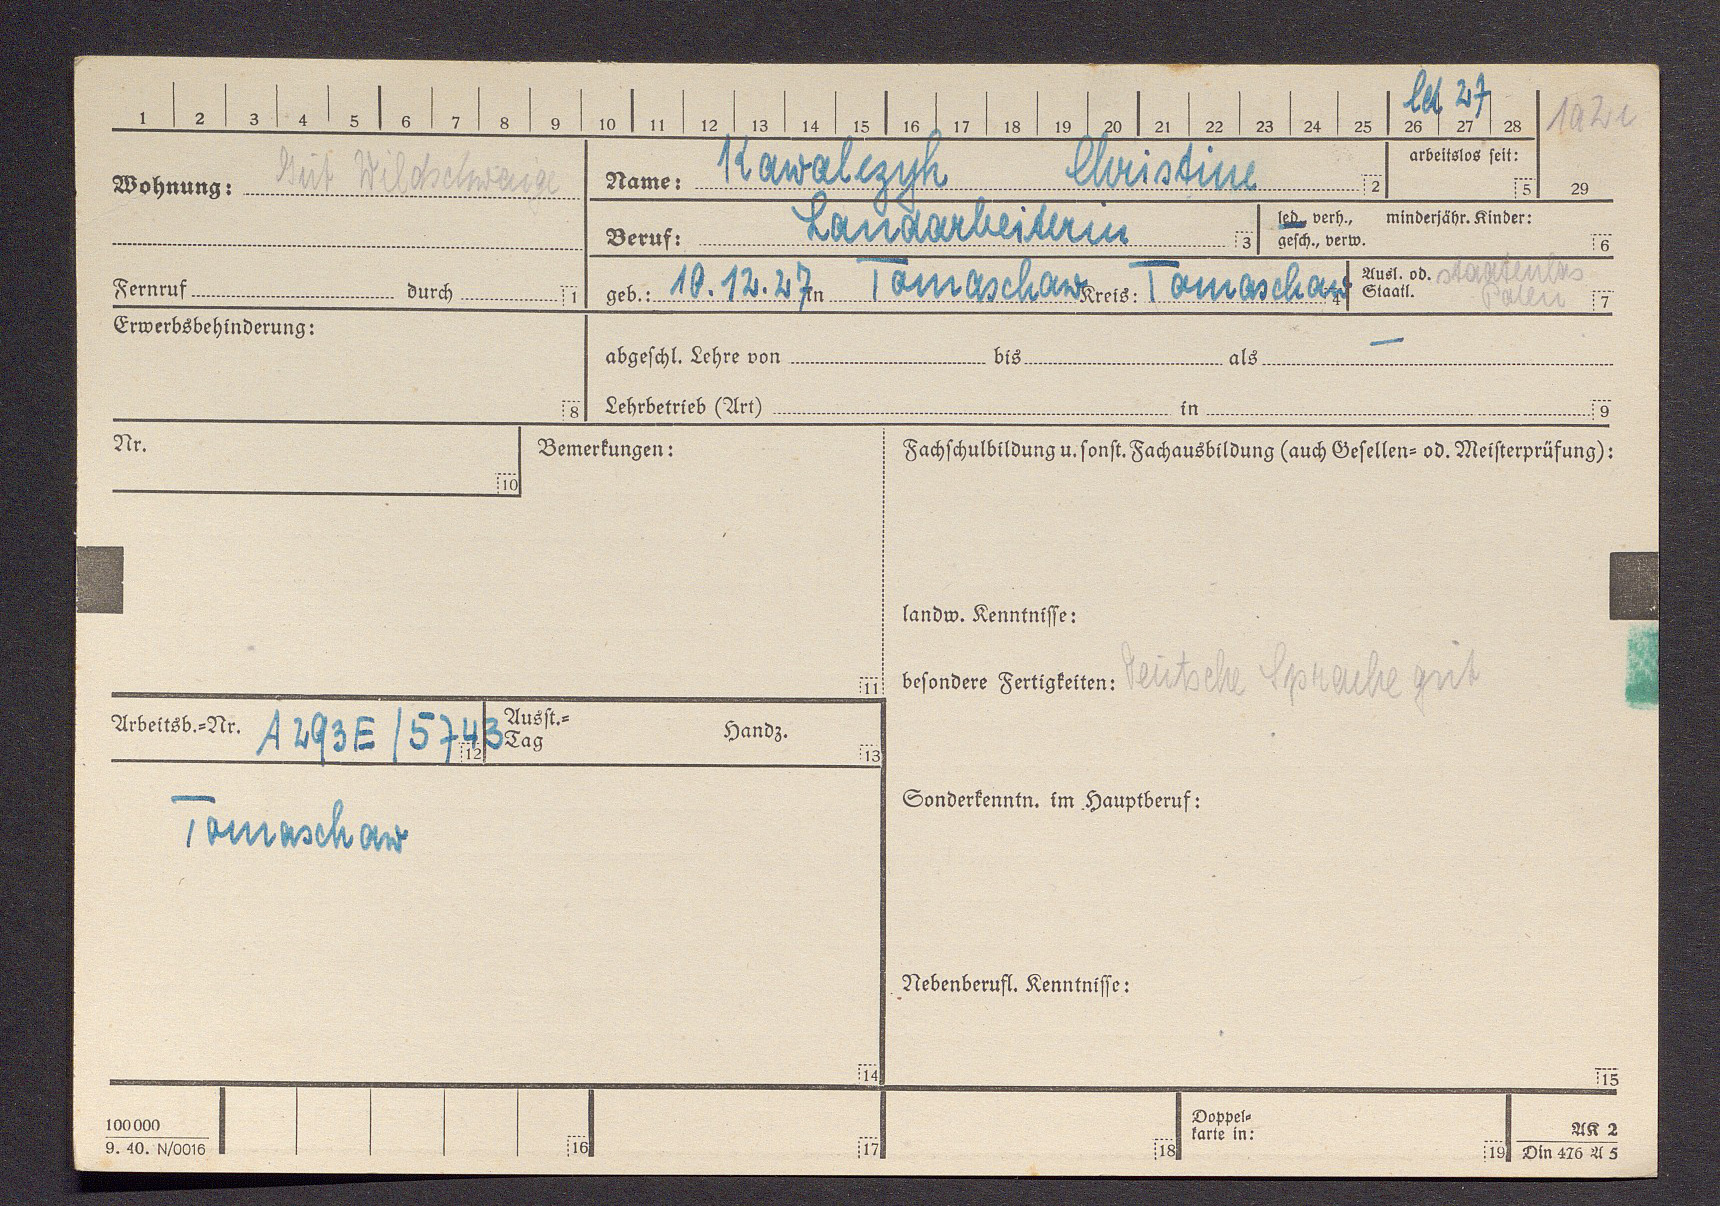 led 27
1 2 3 4 5 6 7 8 9 10 11 12 13 14 15 16 17 18 19 20 21 22 23 24 25 26 27 28 1a2c
Wohnung: Gut Wildschwaige
Name: Kawalczyk Christine 2
arbeitslos seit: 5 29
Beruf: Landarbeiterin 3
led., verh., minderjähr. Kinder:
gesch., verw. 6
Fernruf durch 1
geb.: 10.12.27 in Tomaschaw Kreis: Tomaschaw 4
Ausl. od. staatenlos
Staatl. Polen 7
Erwerbsbehinderung: 8
abgeschl. Lehre von bis als —
Lehrbetrieb (Art) in 9
Nr. 10
Bemerkungen: 11
Fachschulbildung u. sonst. Fachausbildung (auch Gesellen- od. Meisterprüfung):
landw. Kenntnisse:
besondere Fertigkeiten: Deutsche Sprache gut
Arbeitsb.-Nr. A 293E/5743 12
Ausst.-
Tag Handz. 13
Tomaschaw
14
Sonderkenntn. im Hauptberuf:
Nebenberufl. Kenntnisse:
15
100 000
9. 40. N/0016
16 17 18
Doppel-
karte in: 19
AK 2
Din 476 A 5